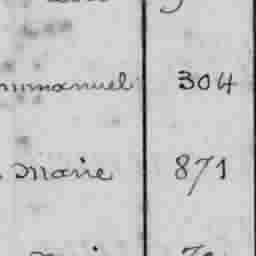 mmanuel 304
Marie 871